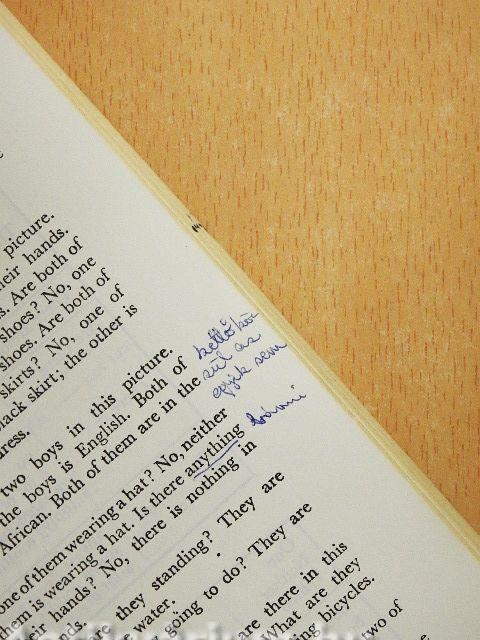 picture.
their hands.
s. Are both of
shoes? No, one
shoes. Are both of
skirts? No, one of
black skirt; the other is
dress.
two boys in this picture.
the boys is English. Both of
African. Both of them are in the
one of them wearing a hat? No, neither
them is wearing a hat. Is there anything
their hands? No, there is nothing in
nds.
they standing? They are
water.
going to do? They are
are there in this
What are they
ing bicycles.
two of
kettő kö-
zül az
egyik sem
bármi